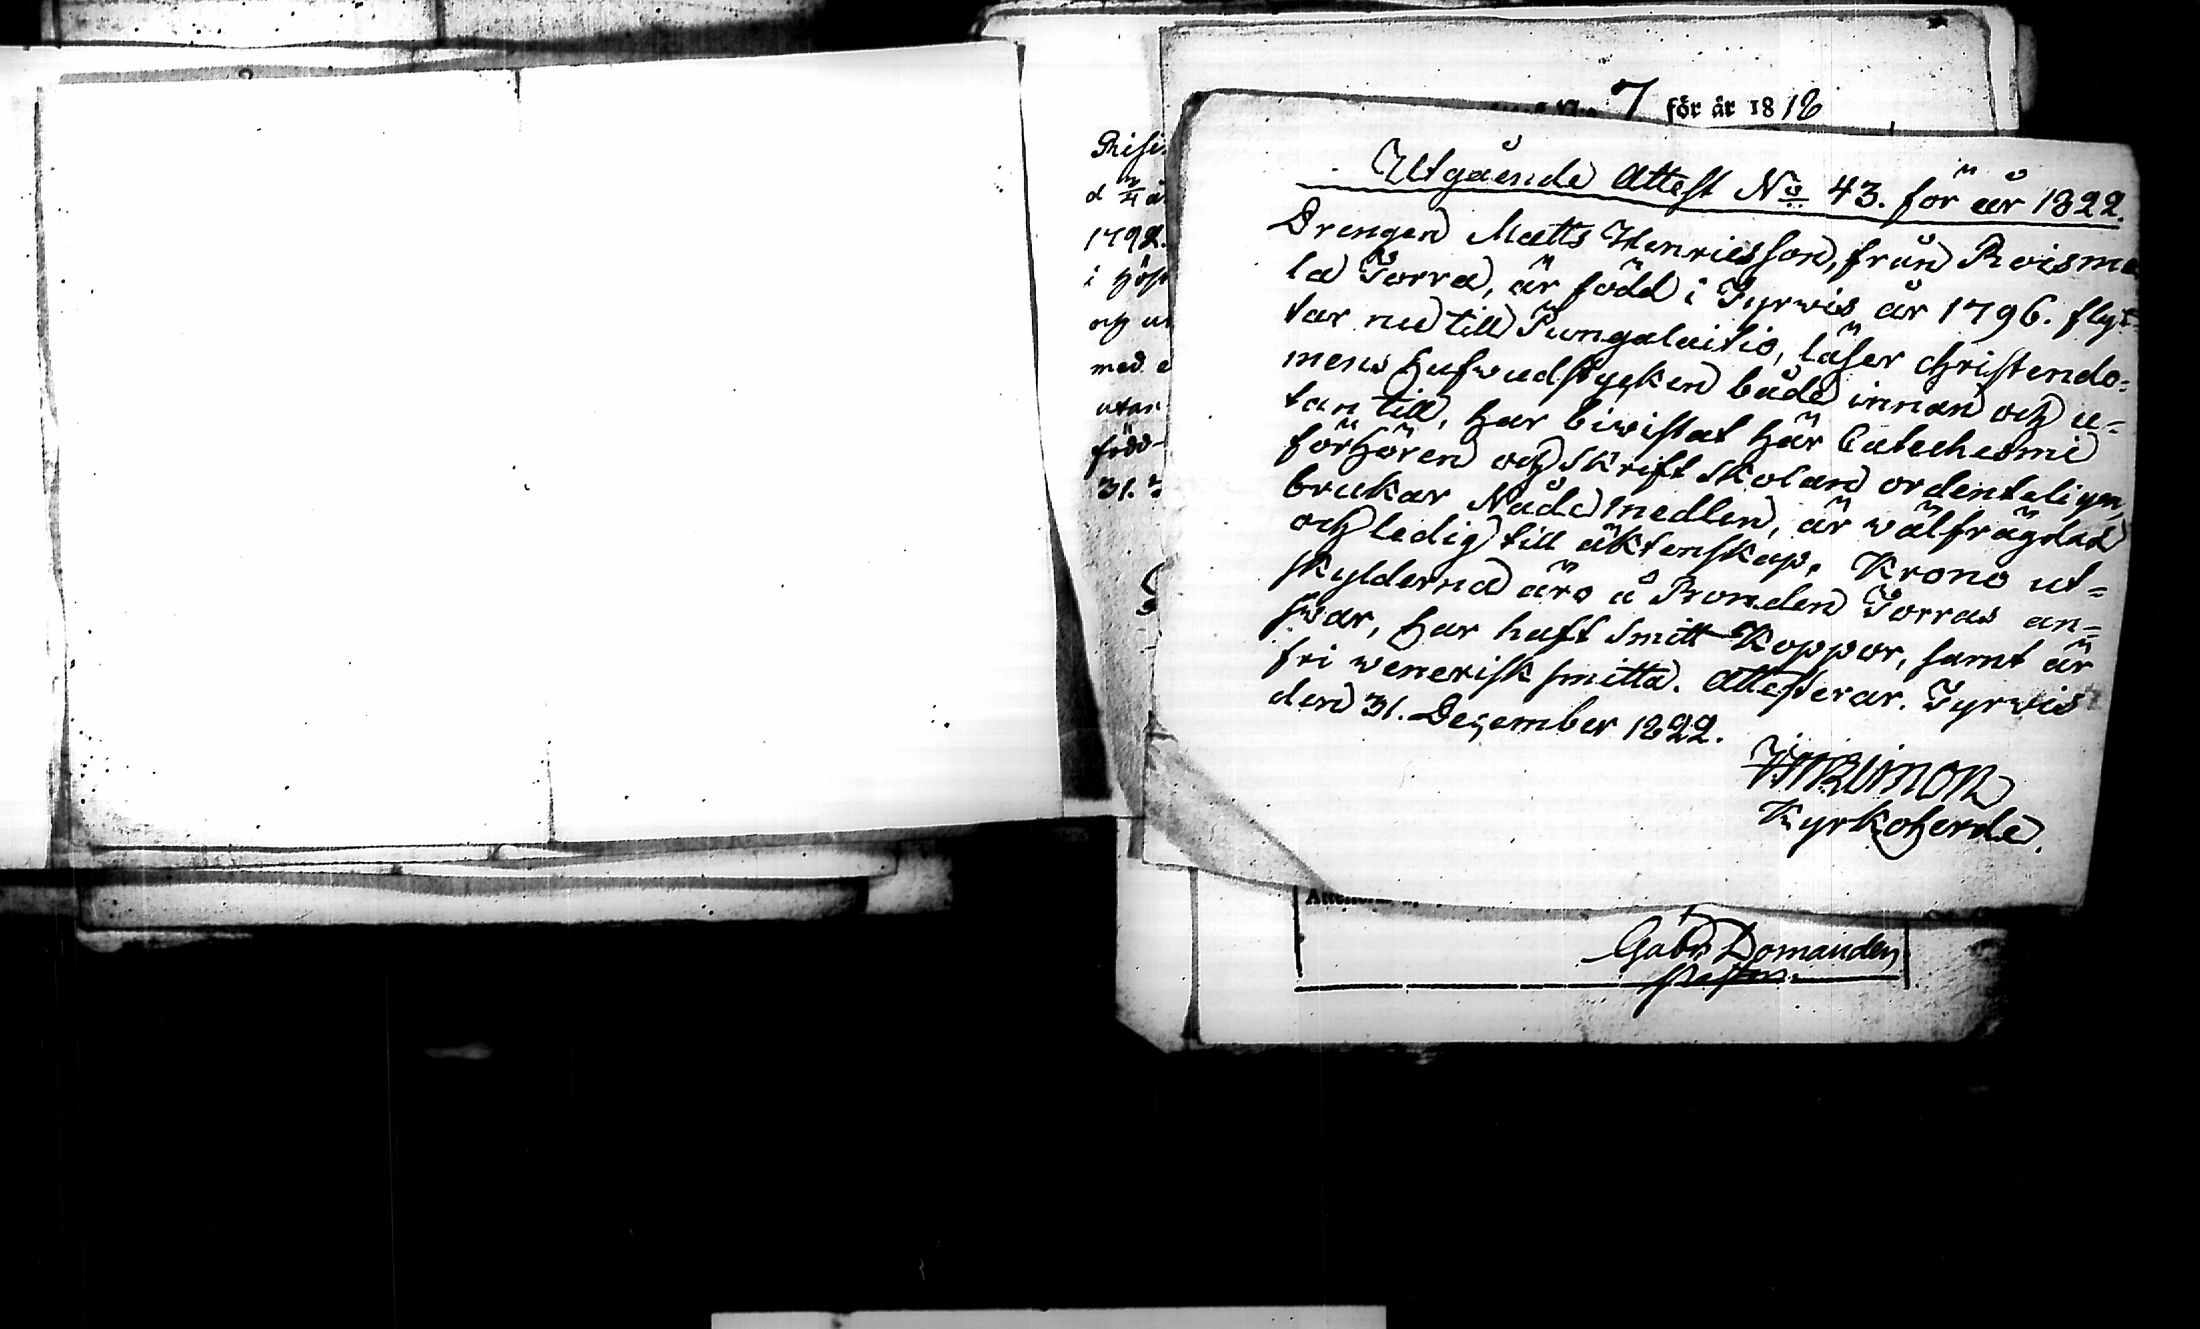 7 för år 1818
Utgående Attest No 43. för år 1822.
Drengen Matts Henricsson, från Roisma
la Torra, är född i Tyrwis år 1796. flyt-
tar nu till Pungalaitio, läser christendo-
mens hufwudstycken både innan och u-
tan till, har biwistat här Catechesmi
förhören och Skriftskolan ordenteligen,
brukar Nådemedlen, är wälfrägdad
och ledig till äktenskap. Krono ut-
skylderna äro å Bonden Torras an-
swar, har haft Smitt Koppor, samt är
fri wenerisk smitta. Attesterar. Tyrwis
den 31. December 1822.
Kyrkoherde.
d
1792.
i
och
med
utan
född
31.
Gabr. Domander
Pastor.